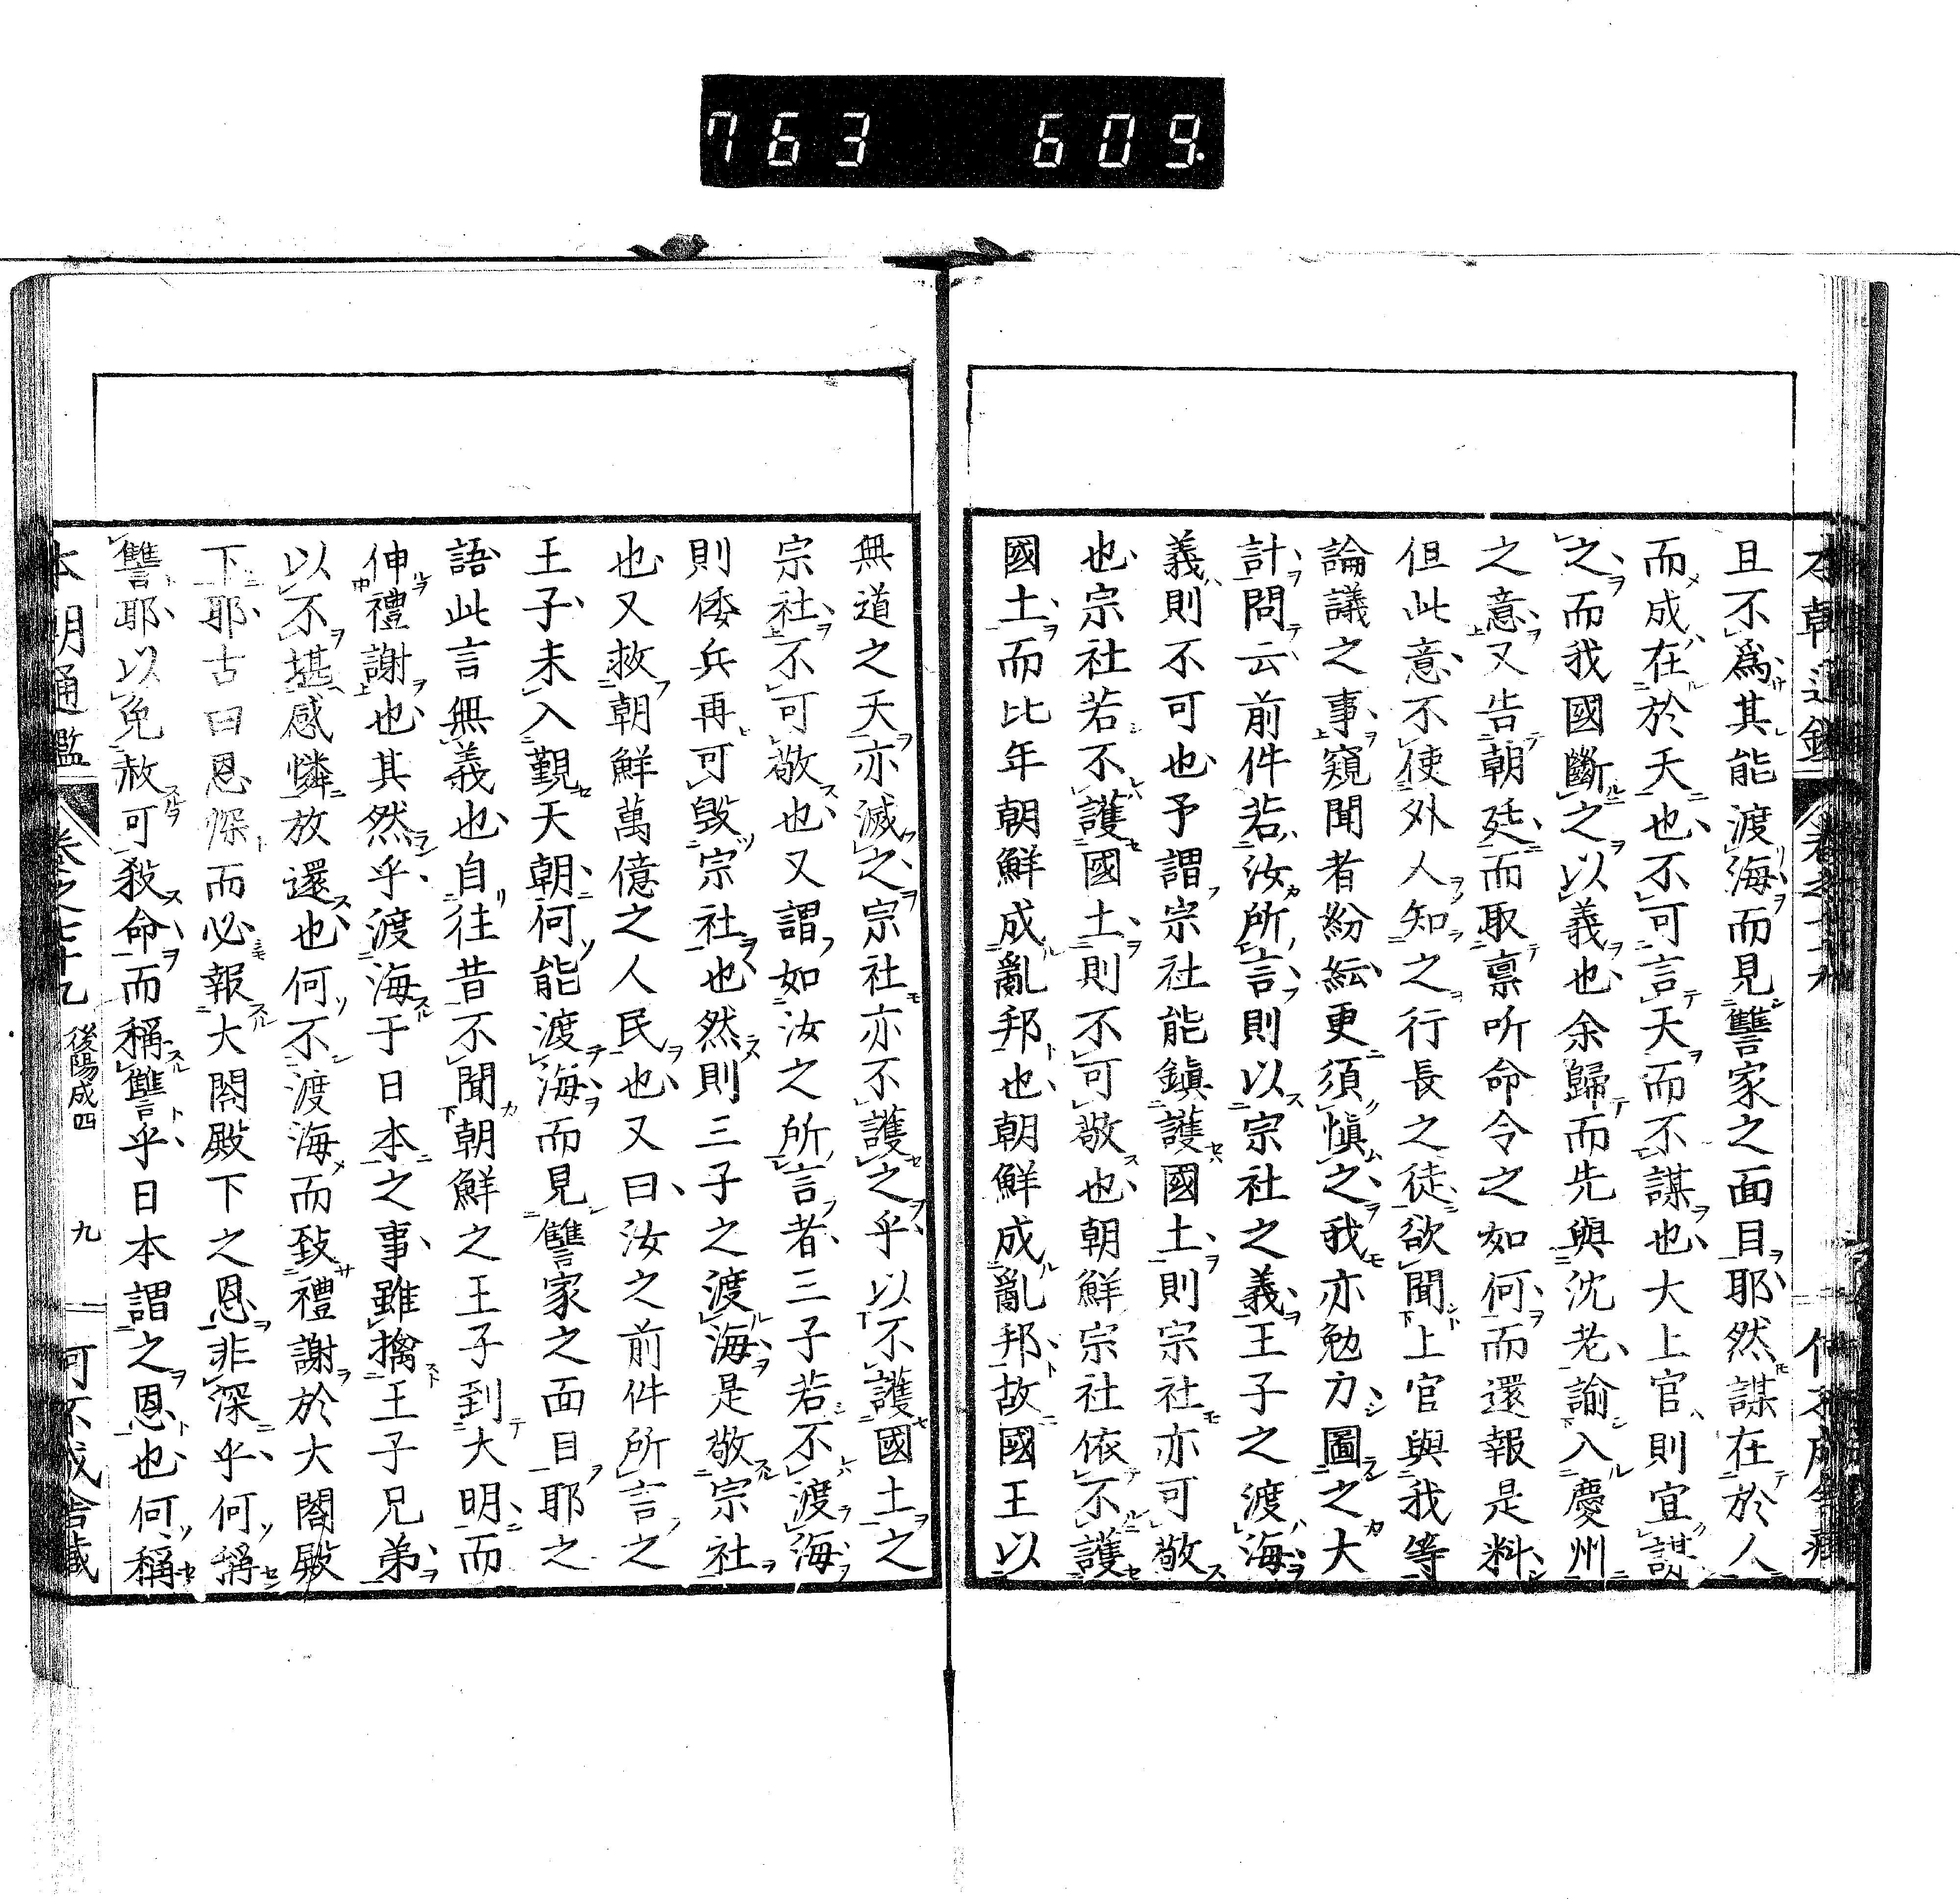 763 609.
且不爲其能渡海而見讐家之面目耶然謀在於人
而成在於天也不可言天而不謀也大上官則宜謀
之而我國斷之以義也余歸而先與沈老諭入慶州
之意又告朝廷而取禀听命令之如何而還報是料
但此意不使外人知之行長之徒欲聞上官與我等
論議之事窺聞者紛紜更須愼之我亦勉力圖之大
計問云前件若汝所言則以宗社之義王子之渡海
義則不可也予謂宗社能鎭護國土則宗社亦可敬
也宗社若不護國土則不可敬也朝鮮宗社依不護
國土而比年朝鮮成亂邦也朝鮮成亂邦故國王以
無道之天亦滅之宗社亦不護之乎以不護國土之
宗社不可敬也又謂如汝之所言者三子若不渡海
則倭兵再可毁宗社也然則三子之渡海是敬宗社
也又救朝鮮萬億之人民也又曰汝之前件所言之
王子未入覲天朝何能渡海而見讐家之面目耶之
語此言無義也自往昔不聞朝鮮之王子到大明而
伸禮謝也其然乎渡海于日本之事雖擒王子兄弟
以不堪感憐放還也何不渡海而致禮謝於大閤殿
下耶古曰恩深而必報大閤殿下之恩非深乎何稱
讐耶以免赦可殺命而稱讐乎日本謂之恩也何稱
本朝通鑑 卷之七十九 後陽成四 九